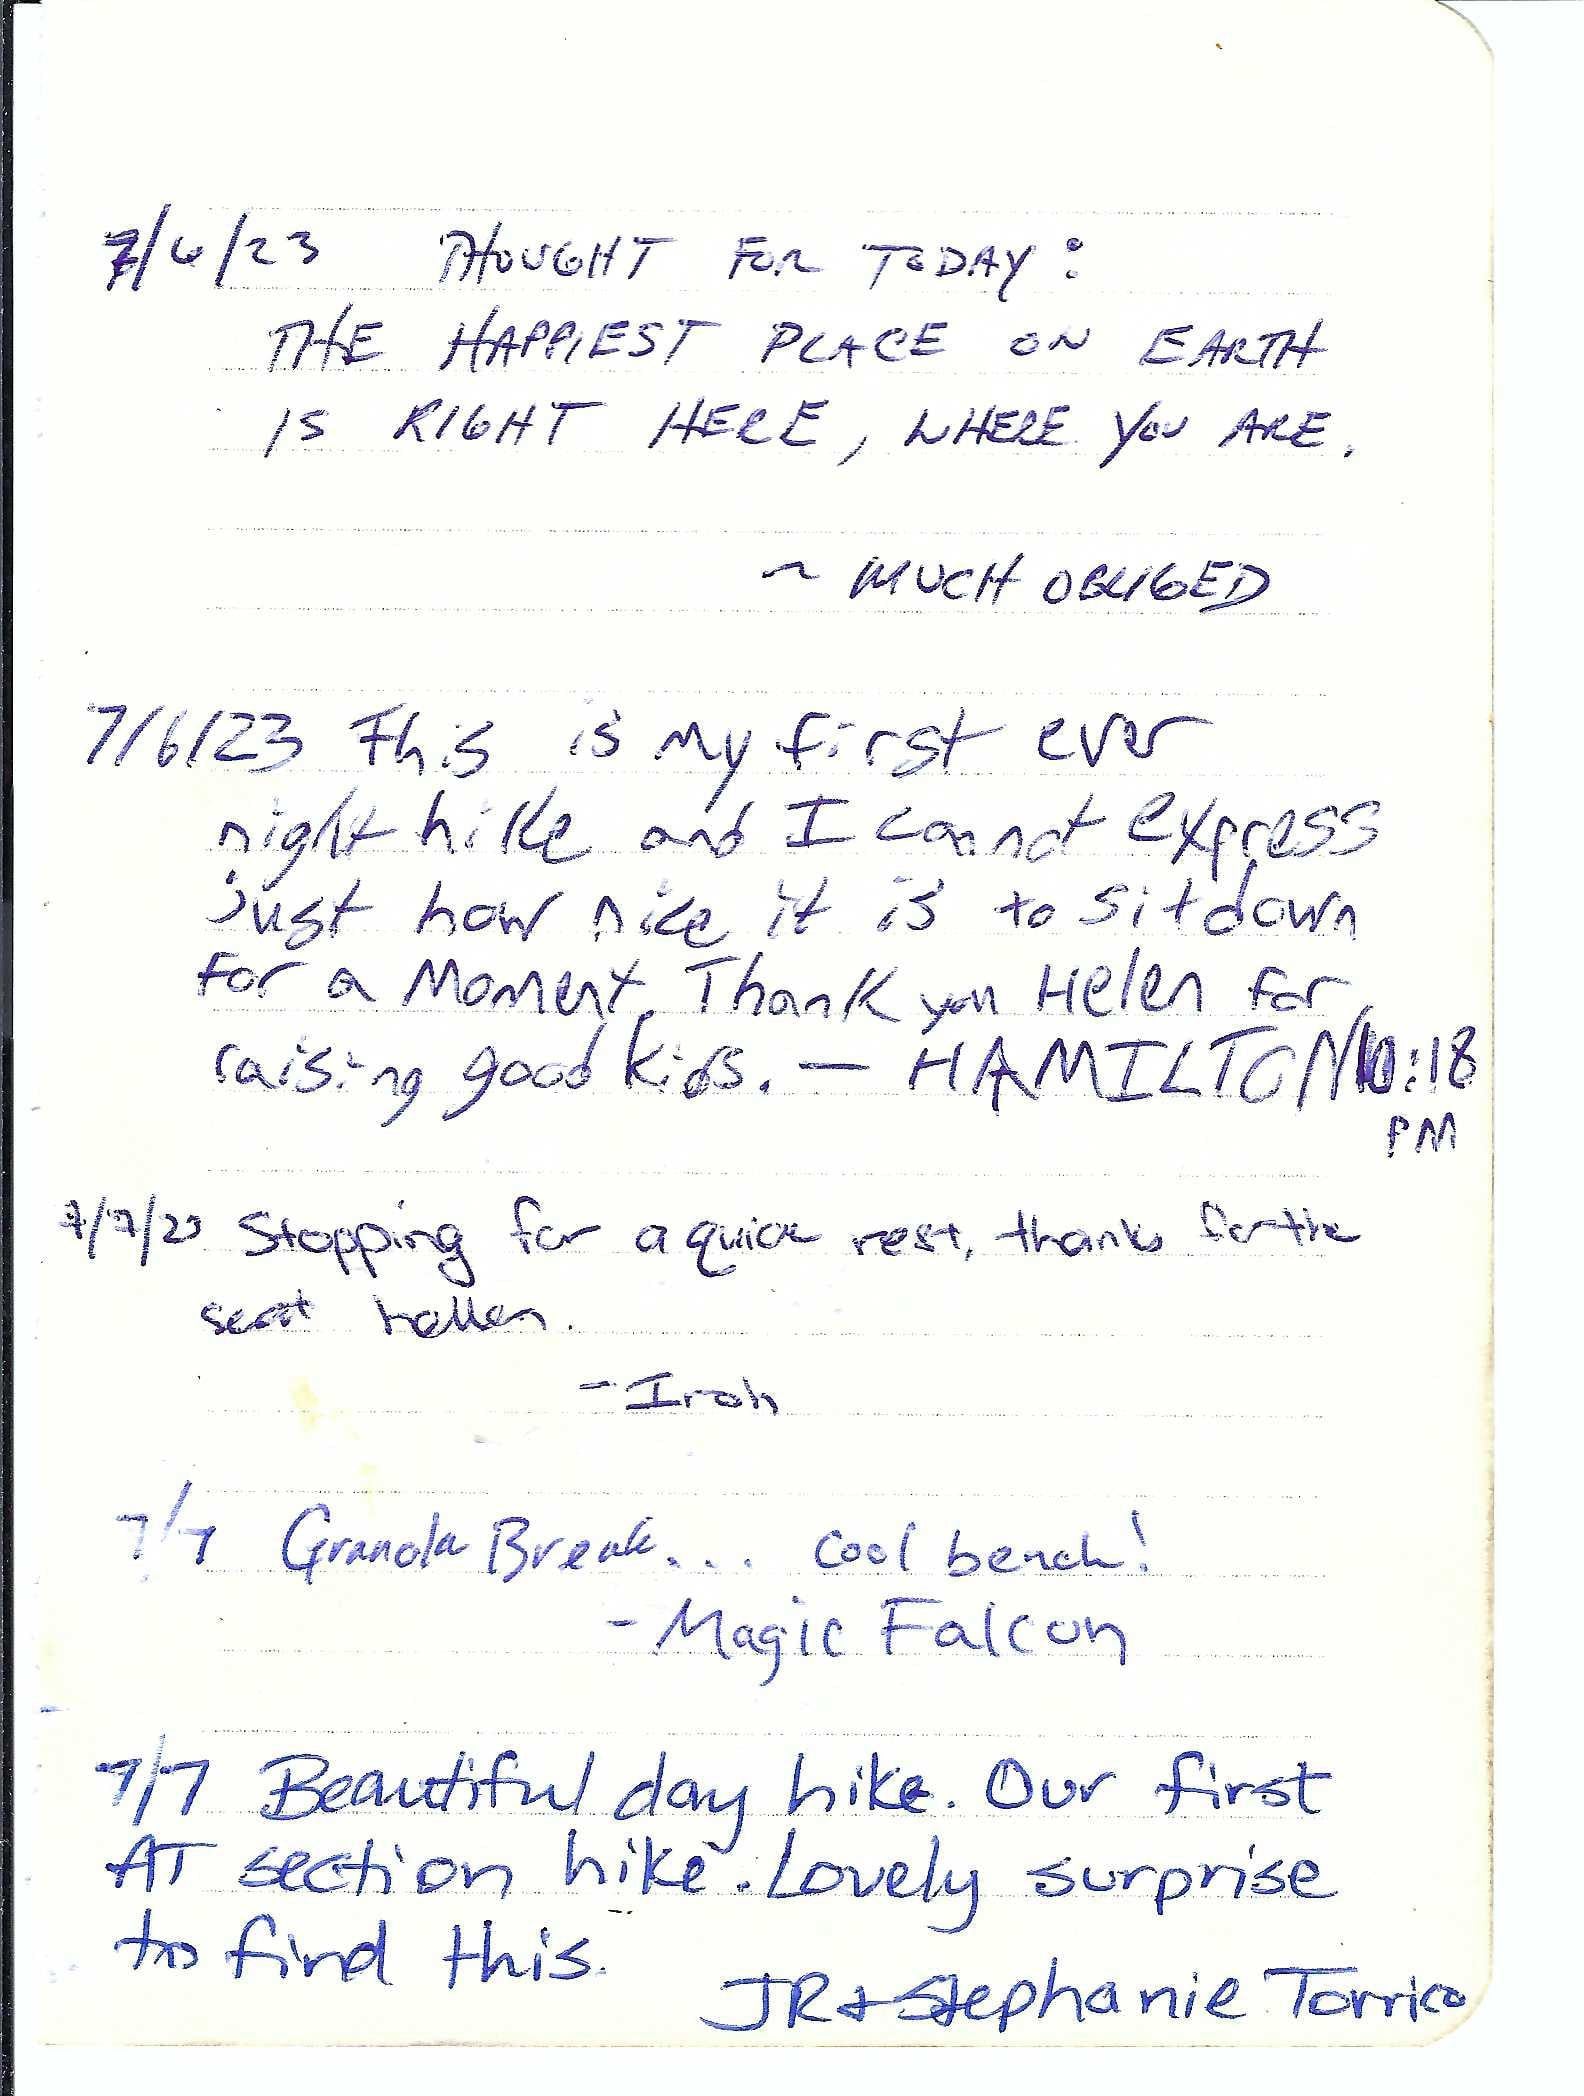 7/6/23 THOUGHT FOR TODAY:
THE HAPPIEST PLACE ON EARTH
IS RIGHT HERE, WHERE YOU ARE.
~ MUCH OBLIGED
7/6/23 This is my first ever
night hike and I cannot express
just how nice it is to sit down
for a moment. Thank you Helen for
raising good kids. — HAMILTON 10:18
PM
7/7/23 Stopping for a quick rest, thanks for the
seat
- Iroh
7/7 Granola Break... cool bench!
- Magic Falcon
7/7 Beautiful day hike. Our first
AT section hike. Lovely surprise
to find this.
JR + Stephanie Torrico